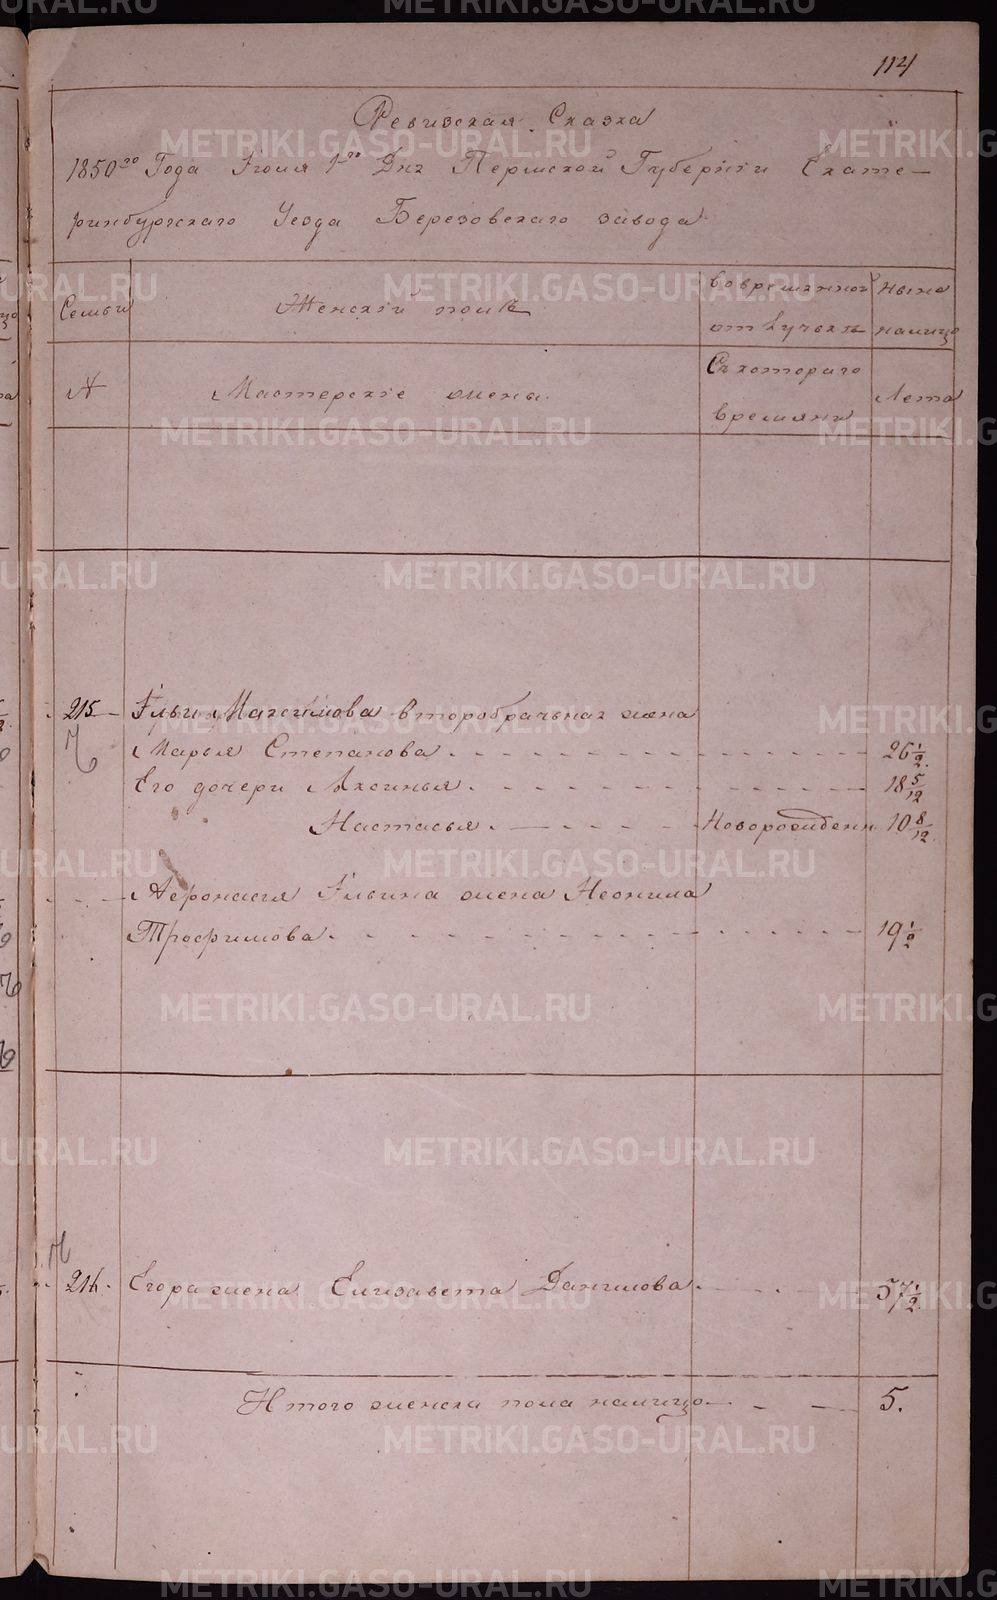 114
Ревизская Сказка
1850го Года Iюля 1го Дня Пермской Губернiи Екате-
ринбургскаго Уезда Березовскаго завода
Семьи
Женскiй полъ
во временной
отлучькѣ
ныне
налицо
№
Мастерскiе жены.
Съ котораго
времяни
Лета
215
Iльи Максимова второбрачьная жена
Марья Степанова 26 1/2
Его дочери Аксинья 18 5/12
Настасья Новорожденн. 10 8/12
Афонасья Iльина жена Неонила
Трофимова 19 1/2
216 Егора жена Елизавета Данилова 57 1/2
Итого женска пола налицо 5.
METRIKI.GASO-URAL.RU